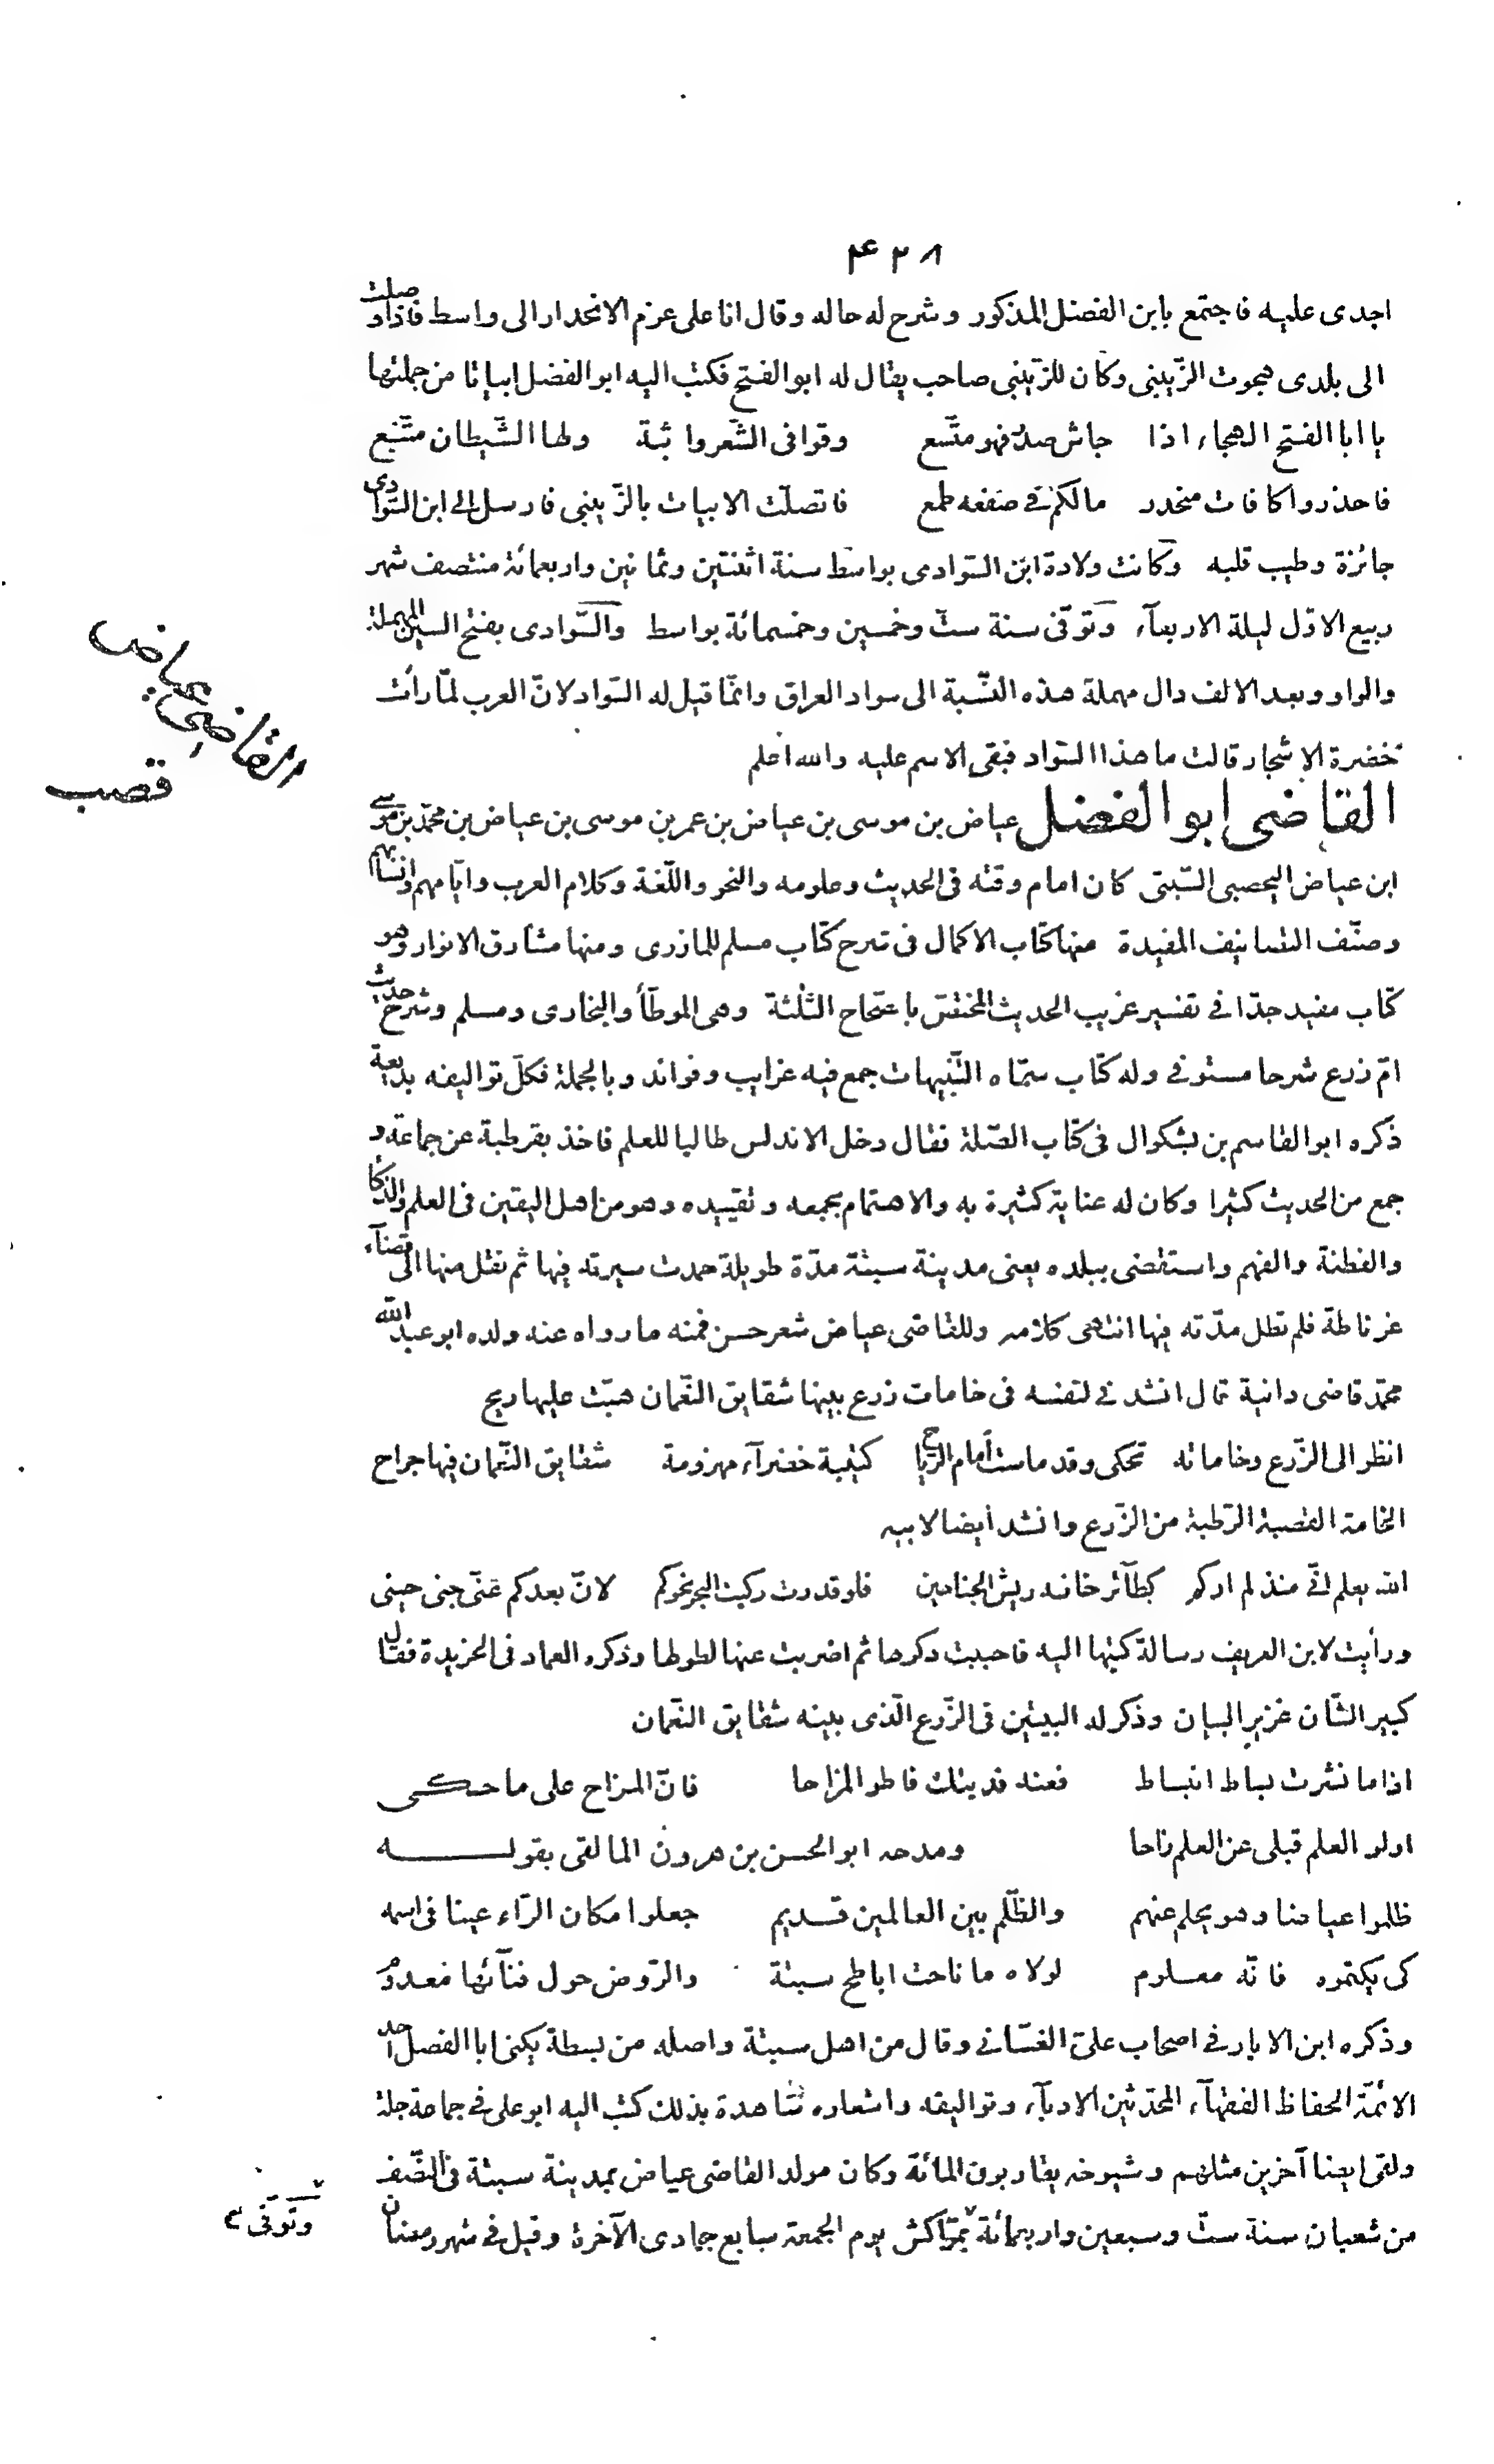 ۴۲۸
اجدى عليه فاجتمع بابن الفضل المذكور وشرح له حاله وقال انا على عزم الانحدار الى واسط فاذا وصلت
الى بلدى هجوت الزّينبى وكان للزّينبى صاحب يقال له ابو الفتح فكتب اليه ابو الفضل ابياتا من جملتها
يا ابا الفتح الهجاء اذا جاش صدر فهو متّسع وقوافى الشّعر واثبة ولها الشّيطان متّبع
فاحذروا كافات منحدر مالكم فى صفعه طمع فاتصلت الابيات بالزّينبى فارسل الى ابن السّوادى
جائزة وطيب قلبه وكانت ولادة ابن السّوادى بواسط سنة اثنتين وثمانين واربعمائة منتصف شهر
ربيع الاوّل ليلة الاربعآء وتوفّى سنة ستّ وخمسين وخمسمائة بواسط والسّوادى بفتح السين المهملة
والواو وبعد الالف دال مهملة هذه النّسبة الى سواد العراق وانّما قيل له السّواد لانّ العرب لمّا رأت
خضرة الاشجار قالت ما هذا السّواد فبقى الاسم عليه والله اعلم
القاضى ابو الفضل عياض بن موسى بن عياض بن عمر بن موسى بن عياض بن محمّد بن موسى
ابن عياض اليحصبى السّبتى كان امام وقته فى الحديث وعلومه والنحو واللّغة وكلام العرب وايّامهم وانسابهم
وصنّف التصانيف المفيدة منها كتاب الاكمال فى شرح كتاب مسلم للمازرى ومنها مشارق الانوار وهو
كتاب مفيد جدّا فى تفسير غريب الحديث المختصّ بالصّحاح الثّلثة وهى الموطّأ والبخارى ومسلم وشرح حديث
امّ زرع شرحا مستوفى وله كتاب سمّاه التّنبيهات جمع فيه غرايب وفوائد وبالجملة فكلّ تواليفه بديعة
ذكره ابو القاسم بن بشكوال فى كتاب الصّلة فقال دخل الاندلس طالبا للعلم فاخذ بقرطبة عن جماعة و
جمع من الحديث كثيرا وكان له عناية كثيرة به والاهتمام بجمعه وتقييده وهو من اهل اليقين فى العلم والذكا
والفطنة والفهم واستقضى ببلده يعنى مدينة سبتة مدّة طويلة حمدت سيرته فيها ثم نقل منها الى قضآء
غرناطة فلم تطل مدّته فيها انتهى كلامه وللقاضى عياض شعر حسن فمنه ما رواه عنه ولده ابو عبد الله
محمّد قاضى دانية قال انشدنى لنفسه فى خامات زرع بينها شقايق النّعمان هبّت عليها ريح
انظر الى الزّرع وخاماته تحكى وقد ماست أمام الرّياح كتيبة خضرآء مهزومة شقايق النّعمان فيها جراح
الخامة القصبة الرّطبة من الزّرع وانشد أيضا لابيه
الله يعلم انّى منذ لم اركم كطآئر خانه ريش الجناحين فلو قدرت ركبت البحر نحوكم لانّ بعدكم عنّى جنى حينى
ورأيت لابن العريف رسالة كتبها اليه فاحببت ذكرها ثم اضربت عنها لطولها وذكره العماد فى الخريدة فقال
كبير الشّان غزير البيان وذكر له البيتين فى الزّرع الّذى بينه شقايق النّعمان
اذا ما نشرت بساط انبساط فعنه فديتك فاطو المزاحا فانّ المزاح على ما حكى
اولو العلم قبلى عن العلم زاحا ومدحه ابو الحسن بن هرون المالقى بقوله
ظلموا عياضا وهو يحلم عنهم والظّلم بين العالمين قديم جعلوا مكان الرّاء عينا فى اسمه
كى يكتموه فانّه معلوم لولاه ما ناحت اباطح سبتة والرّوض حول فنآئها معدوم
وذكره ابن الابار فى اصحاب علىّ الغسّانى وقال من اهل سبتة واصله من بسطة يكنى ابا الفضل احد
الائمّة الحفاظ الفقهآء المحدّثين الادبآء وتواليفه واشعاره شاهدة بذلك كتب اليه ابو على فى جماعة جلة
ولقى ايضا آخرين مثلهم وشيوخه يقاربون المائة وكان مولد القاضى عياض بمدينة سبتة فى النّصف
من شعبان سنة ستّ وسبعين واربعمائة بمرّاكش يوم الجمعة سابع جمادى الآخرة وقيل فى شهر رمضان
القاضى عياض
وتوفّى